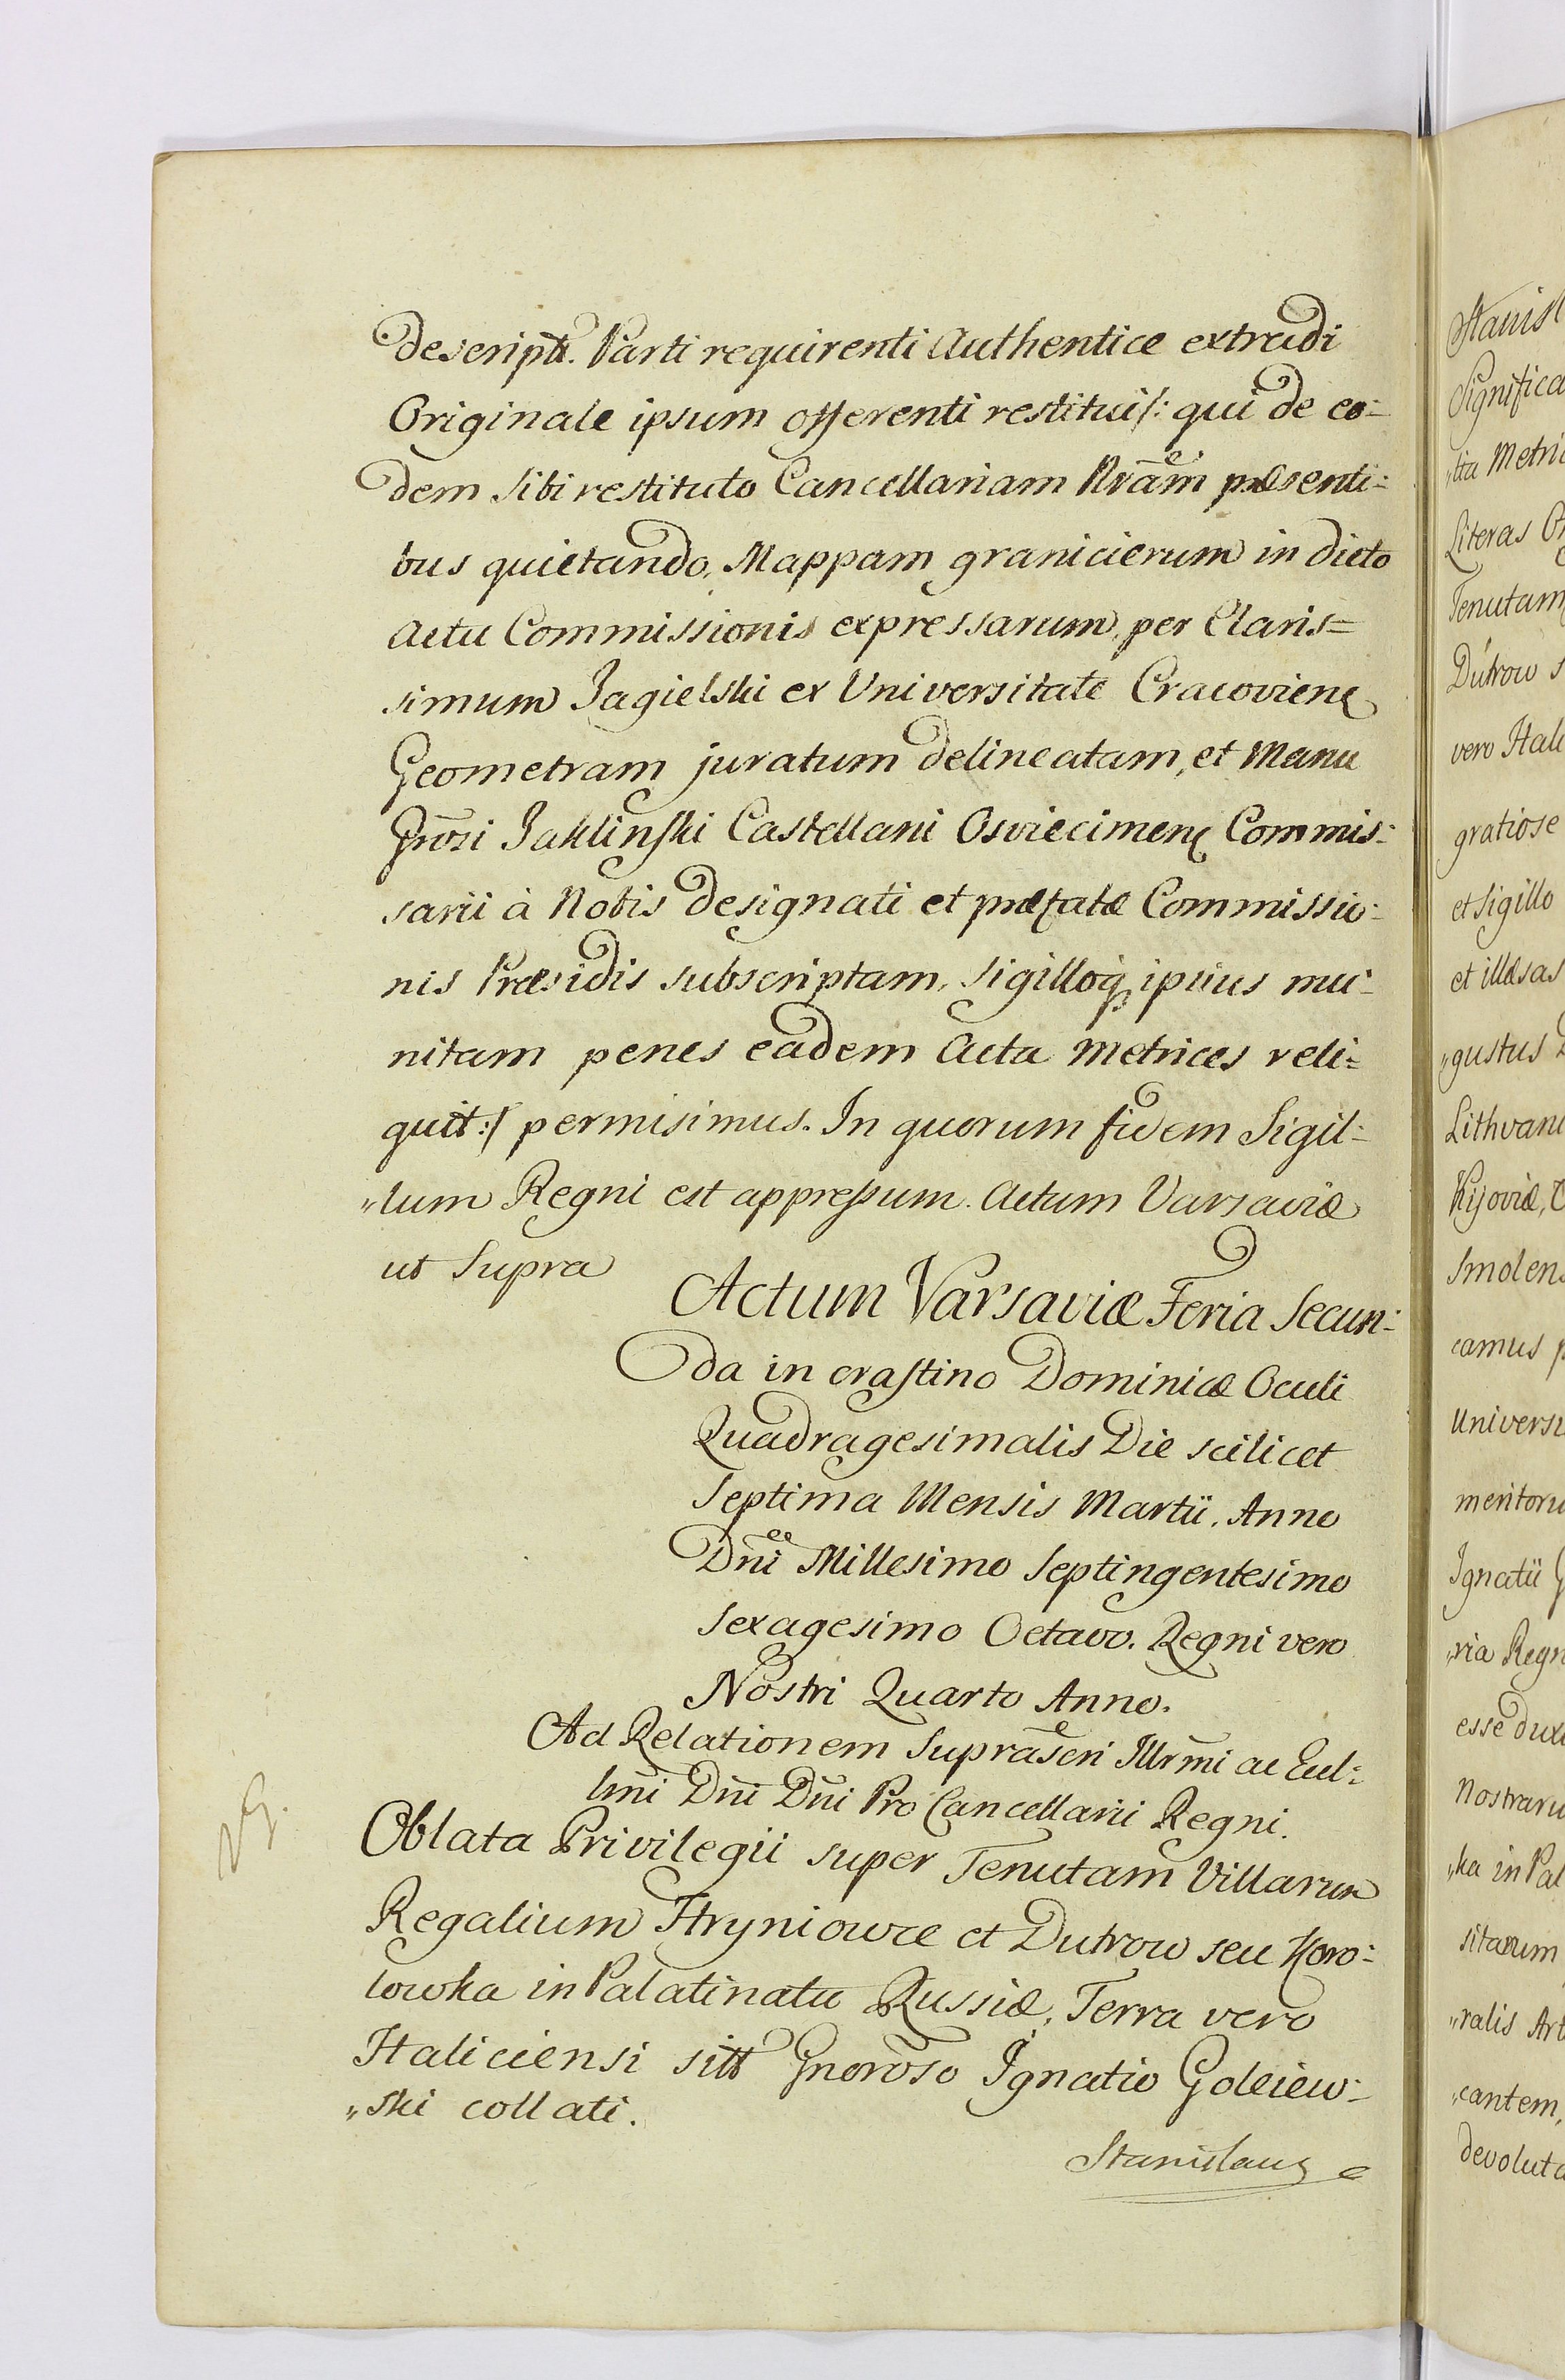 descriptt. Parti requirenti Authentice extradi
Originale ipsum offerenti restitui /: qui de eo=
dem sibi restituto Cancellariam Nram præsenti=
bus quietando, Mappam granicierum in dicto
Actu Commissionis expressarum, per Claris=
simum Jagielski ex Universitate Cracovienę
Geometram juratum delineatam, et Manu
Gnosi Jaklinski Castellani Osviecimenę Commis=
sarii à Nobis designati et præfatæ Commissio=
nis Præsidis subscriptam, Sigilloq ipsius mu=
nitam penes eadem Acta Metrices reli=
quit :/ permisimus. In quorum fidem Sigil=
„lum Regni est appressum. Actum Varsaviæ
ut Supra
Actum Varsaviæ Feria Secun=
da in crastino Dominicæ Oculi
Quadragesimalis Die scilicet
Septima Mensis Martii, Anno
Dni Millesimo Septingentesimo
Sexagesimo Octavo. Regni vero
Nostri Quarto Anno.
Ad Relationem Suprascri Illrmi ac Excl=
lmi Dni Dni Pro Cancellarii Regni.
Oblata Privilegii super Tenutam Villarum
Regalium Hryniowce et Dutrow seu Koro=
lowka in Palatinatu Russiæ, Terra vero
Haliciensi sitt Gnoroso Ignatio Goleiew=
„ski collati.
Stanislaus
Stanisl
Significa
„lia Metric
Literas Or
Tenutam
Dutrow s
vero Hali
gratiose
et Sigillo
et illæsas
„gustus D
Lithvani
Kijoviæ,
Smolens
camus p
Universi
meritoru
Ignatii G
„ria Regn
esse duxi
Nostraru
„ka in Pal
sitarum
„ralis Art
„cantem,
devoluta